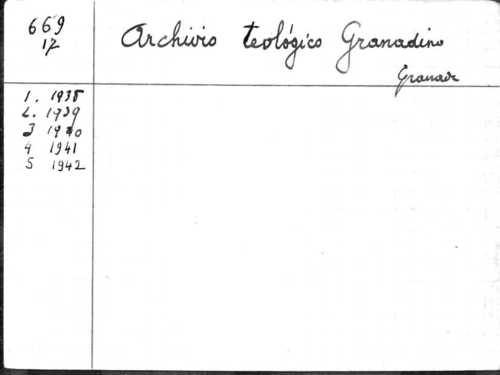 669
17
Archivio teológico Granadino
Granada
1. 1938
2. 1939
3 1940
4 1941
5 1942